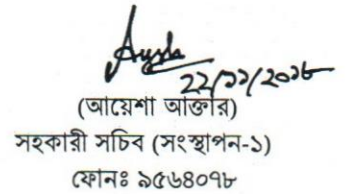 Aysha
22/11/2018
(আয়েশা আক্তার)
সহকারী সচিব (সংস্থাপন-১)
ফোনঃ ৯৫৬৪০৭৮